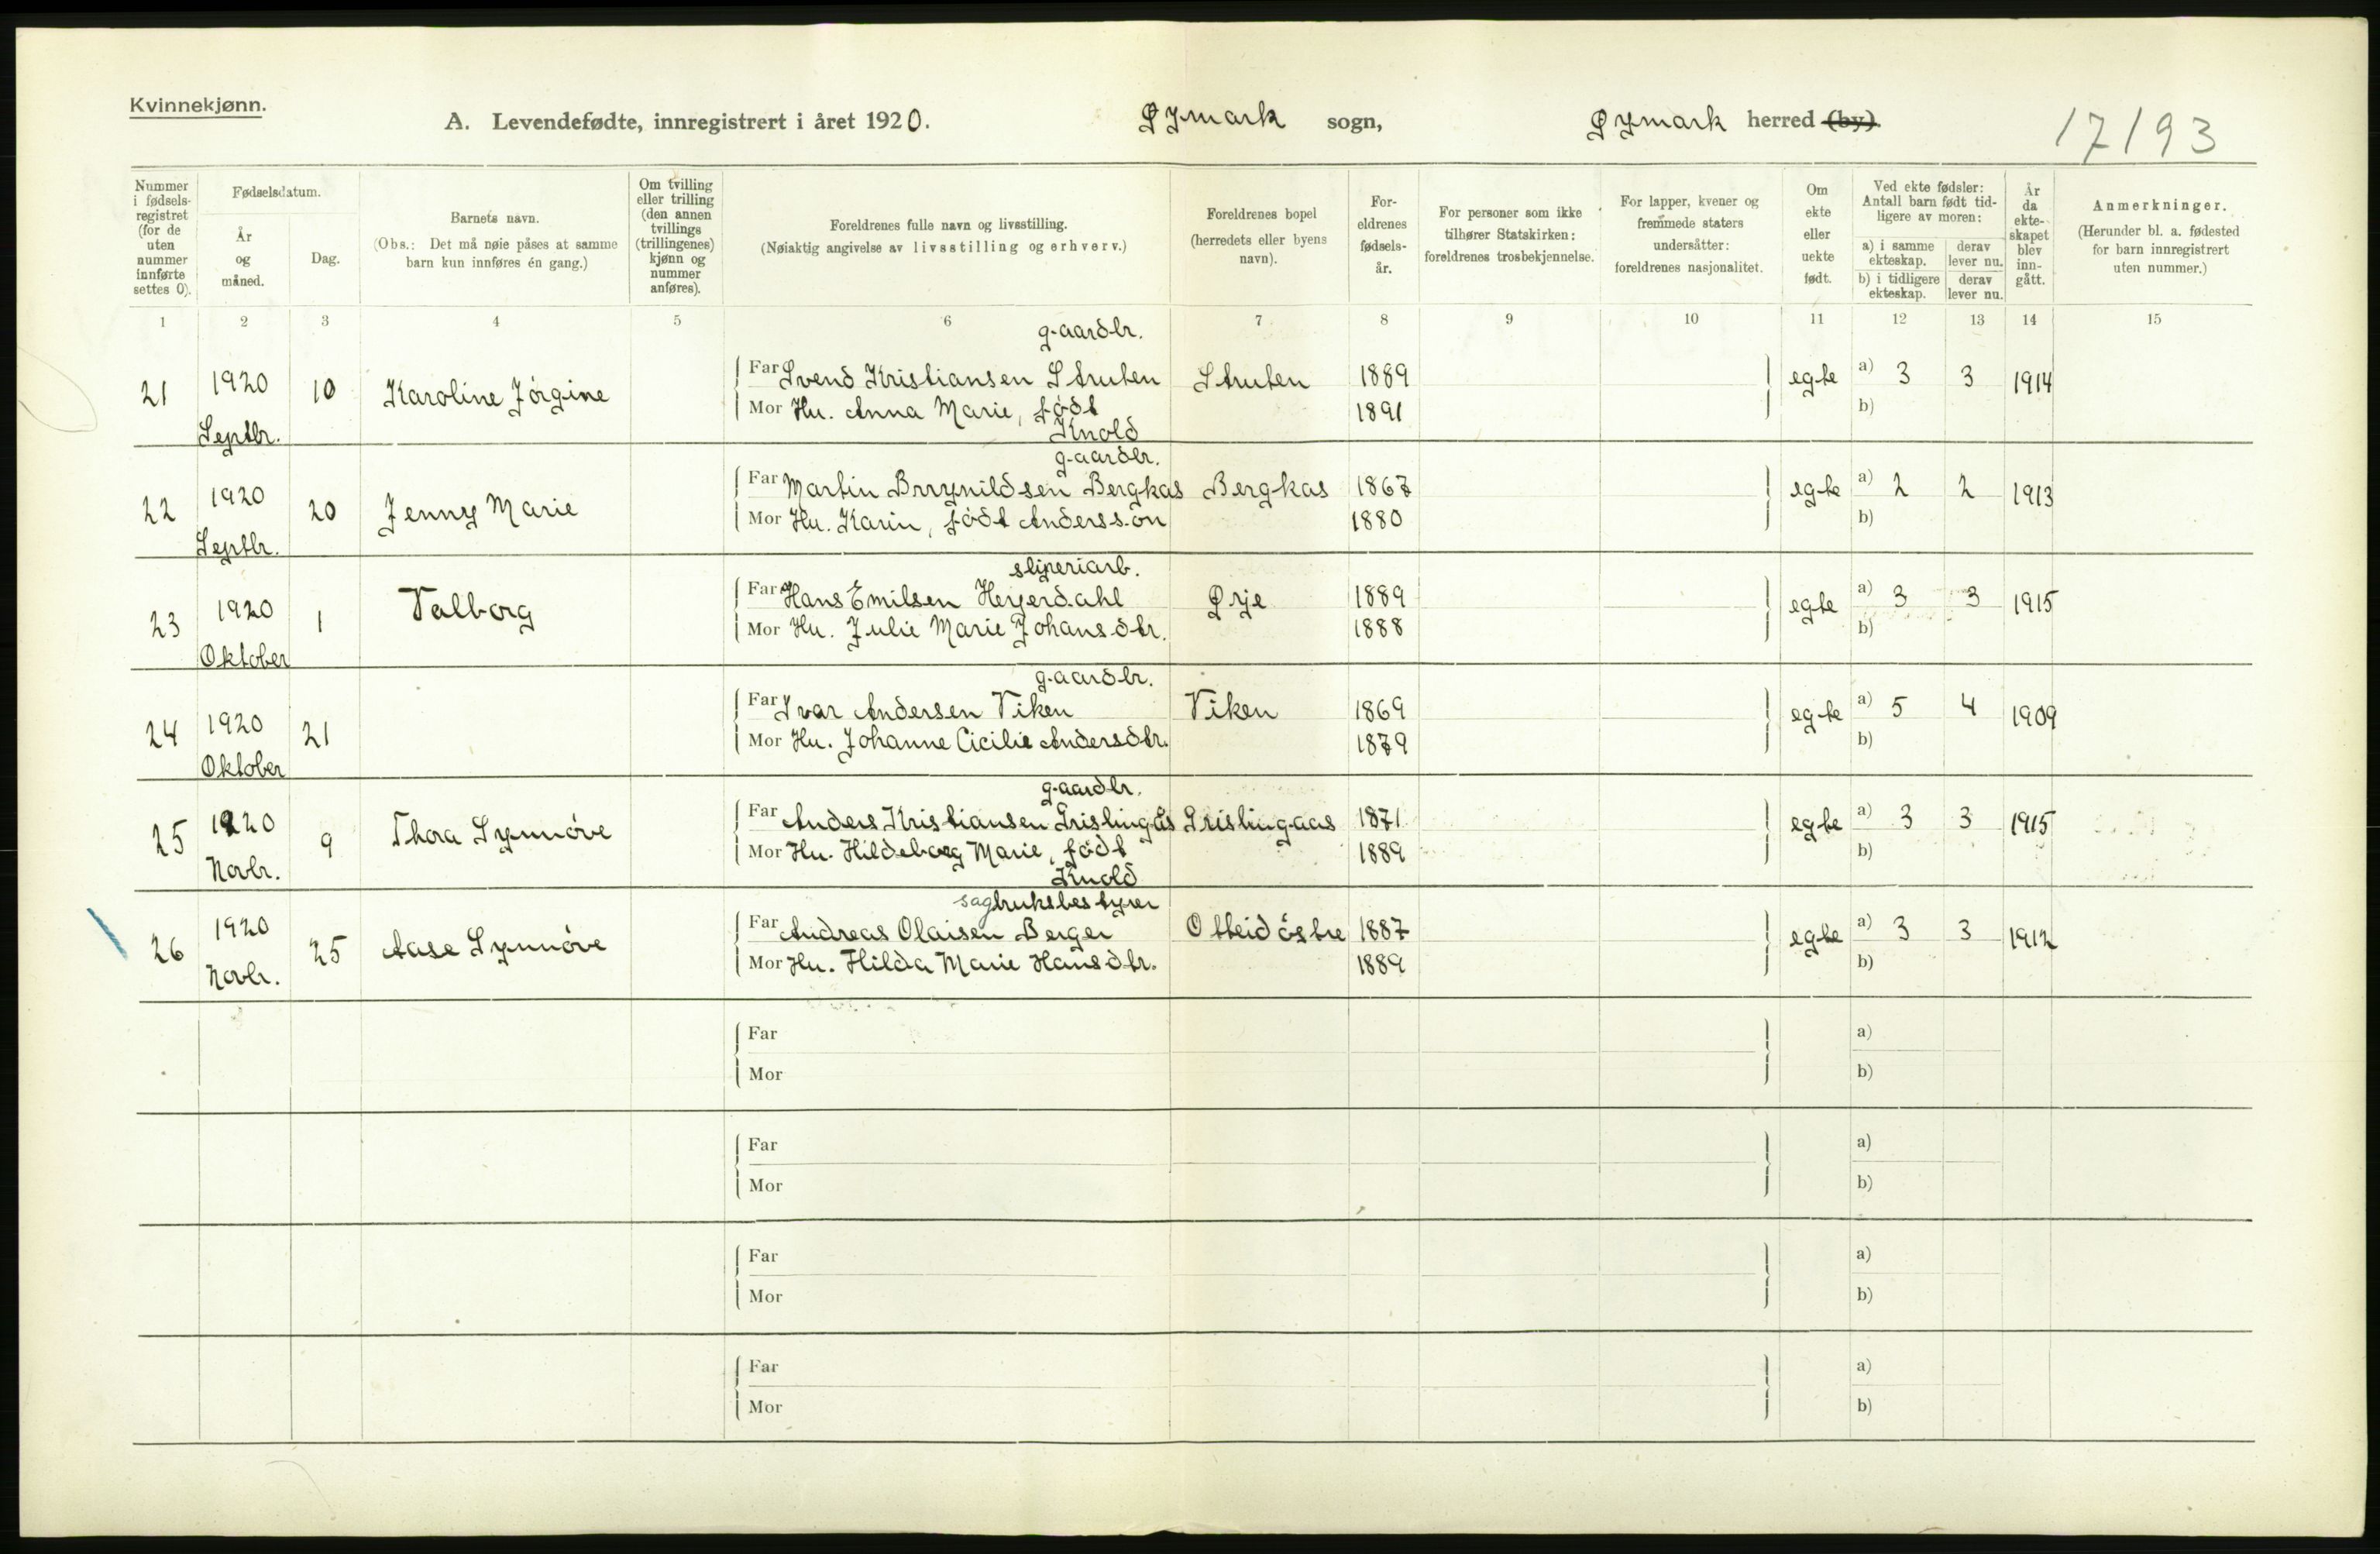 Kvinnekjønn.
A. Levendefødte, innregistrert i året 1920. Øymark sogn, Øymark herred (by).
17193
Nummer i fødsels-registret (for de uten nummer innførte settes 0).
Fødselsdatum.
År og måned.
Dag.
Barnets navn.
(Obs.: Det må nøie påses at samme barn kun innføres én gang.)
Om tvilling eller trilling (den annen tvillings (trillingenes) kjønn og nummer anføres).
Foreldrenes fulle navn og livsstilling.
(Nøiaktig angivelse av livsstilling og erhverv.)
Foreldrenes bopel (herredets eller byens navn).
For-eldrenes fødsels-år.
For personer som ikke tilhører Statskirken: foreldrenes trosbekjennelse.
For lapper, kvener og fremmede staters undersåtter: foreldrenes nasjonalitet.
Om ekte eller uekte født.
Ved ekte fødsler: Antall barn født tid-ligere av moren:
a) i samme ekteskap. derav lever nu.
b) i tidligere ekteskap. derav lever nu.
År da ekte-skapet blev inn-gått.
Anmerkninger.
(Herunder bl. a. fødested for barn innregistrert uten nummer.)
1 2 3 4 5 6 7 8 9 10 11 12 13 14 15
gaardbr.
21 1920 Septbr. 10 Karoline Jörgine Far Svend Kristiansen Struten Struten 1889 egte a) 3 3 1914
Mor Hu. Anna Marie, född 1891 b)
Knold
gaardbr.
22 1920 Septbr. 20 Jenny Marie Far Martin Brrynildsen Bergkas Bergkas 1867 egte a) 2 2 1913
Mor Hu. Karin, född Andersson 1880 b)
sliperiarb.
23 1920 Oktober 1 Valborg Far Hans Emilsen Herjerdahl Ørje 1889 egte a) 3 3 1915
Mor Hu. Julie Marie Johansdtr. 1888 b)
gaardbr.
24 1920 Oktober 21 Far Ivar Andersen Viken Viken 1869 egte a) 5 4 1909
Mor Hu. Johanne Cicilie Andersdtr. 1879 b)
gaardbr.
25 1920 Novbr. 9 Thora Synnöve Far Anders Kristiansen Grislingås Grislingaas 1871 egte a) 3 3 1915
Mor Hu. Hildeborg Marie, född 1889 b)
Knold
sagbruksbestyrer
26 1920 Novbr. 25 Aase Synnöve Far Andreas Olaisen Berger Otteid östre 1887 egte a) 3 3 1912
Mor Hu. Hilda Marie Hansdtr. 1889 b)
Far a)
Mor b)
Far a)
Mor b)
Far a)
Mor b)
Far a)
Mor b)